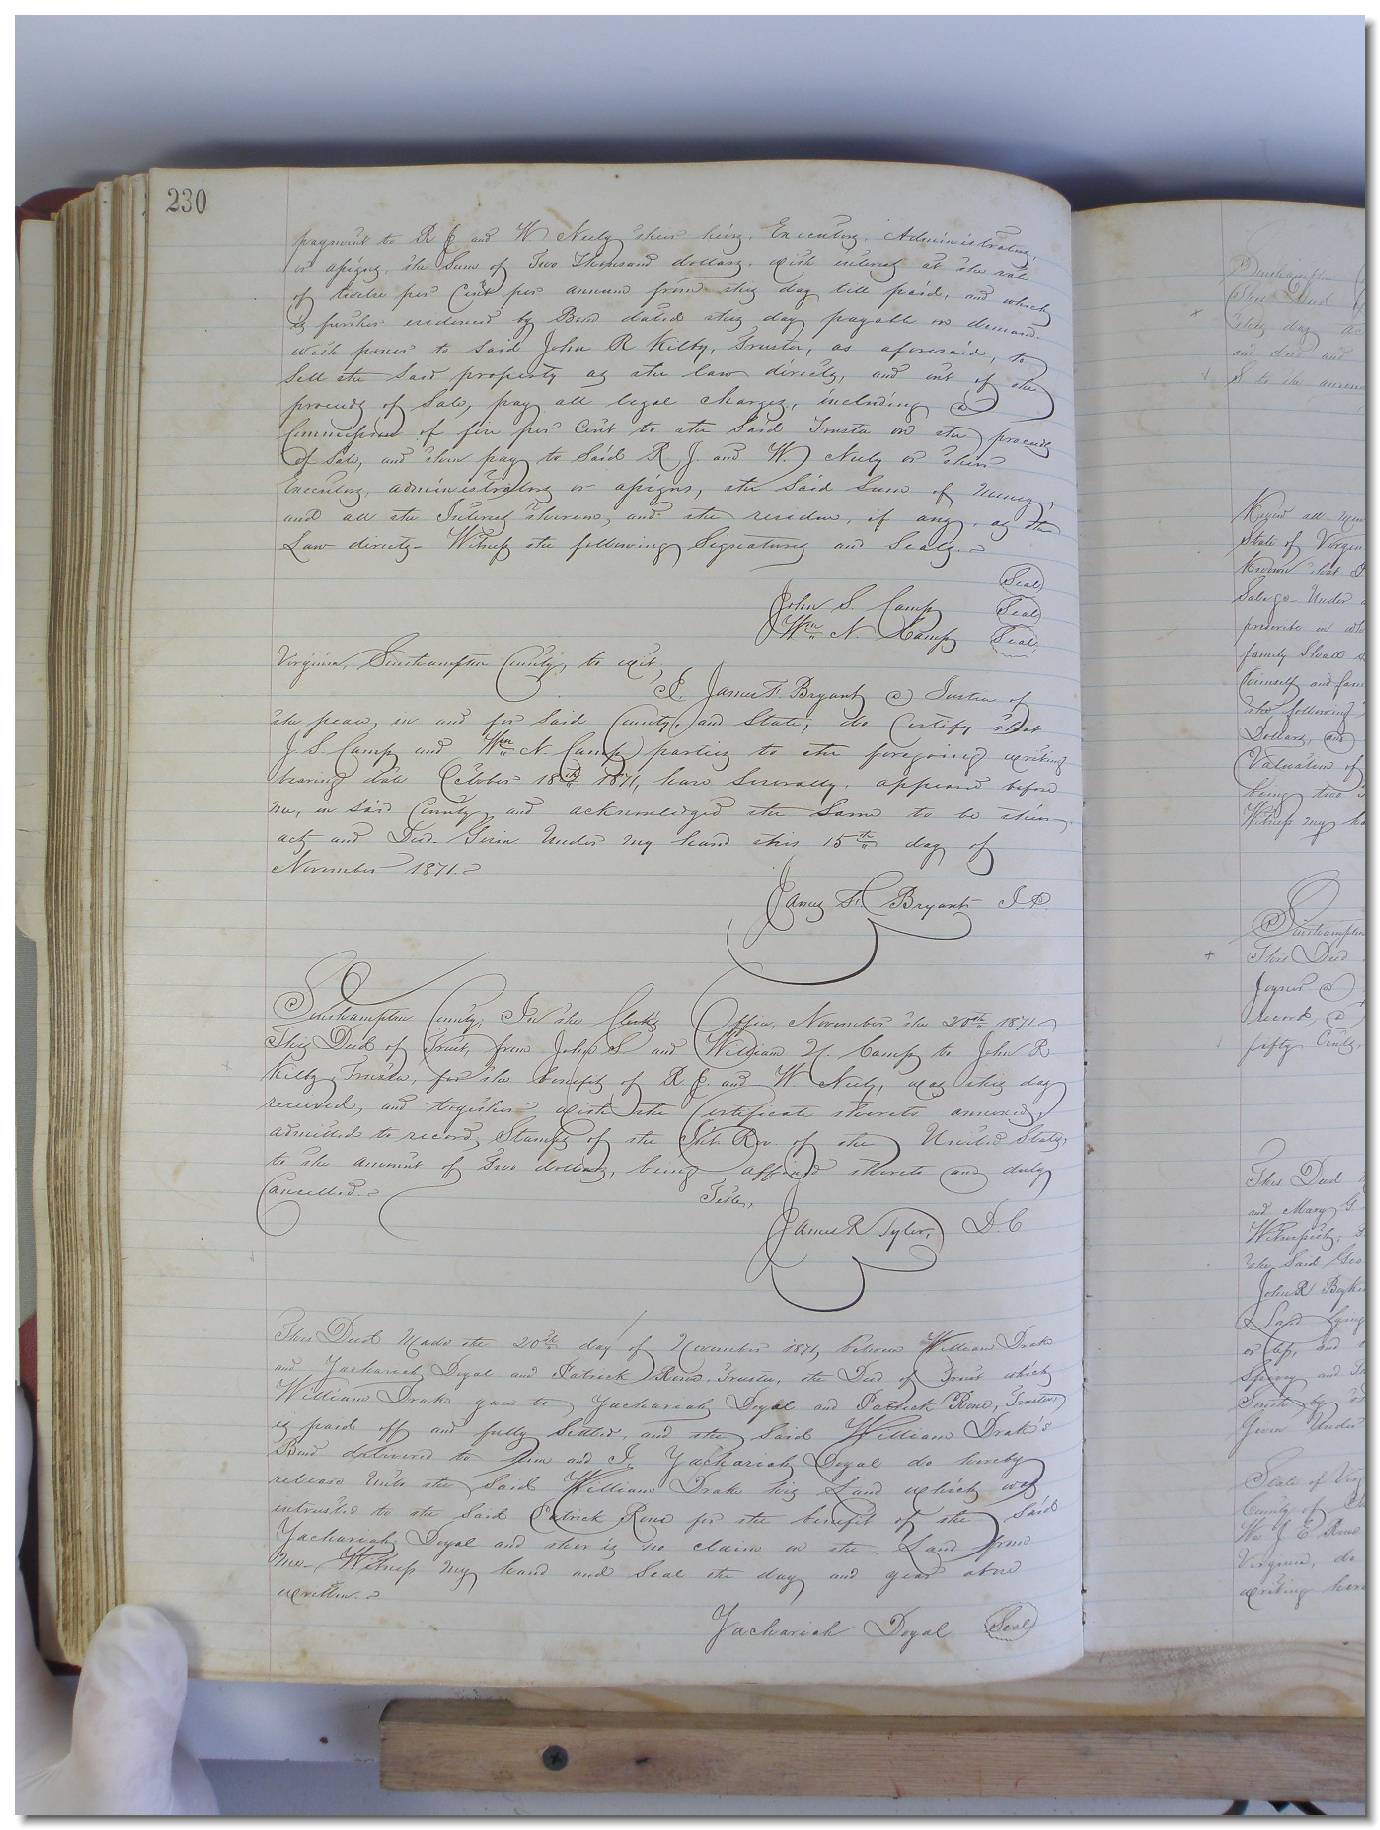 230
payment to R J and W Neely their heirs, Executors, Administrators,
or assigns, the Sum of Two Thousand dollars, with interest at the rate
of twelve per Cent per annum from this day till paid, and which
is further evidenced by Bond dated this day payable on demand.
with power to said John R Kilby, Trustee, as aforesaid, to
Sell the said property as the law directs, and out of the
proceeds of Sale, pay all legal charges, including a
Commission of five per Cent to the Said Trustee on the proceeds
of Sale, and then pay to Said R. J. and W. Neely or their
Executors, administrators or assigns, the Said Sum of Money,
and all the Interest thereon, and the residue, if any, as the
Law directs - Witness the following Signatures and Seals.
Seal
John S. Camp Seal
Wm N. Camp Seal
Virginia, Southampton County, to wit;
I, James F. Bryant a Justice of
the peace, in and for Said County, and State, do Certify that
J. S. Camp and Wm N Camp parties to the foregoing writing
bearing date October 18th 1871, have Severally, appeared before
me, in said County and acknowledged the Same to be their
act and Deed. Given Under my hand this 15th day of
November 1871.
James F. Bryant J.P.
Southampton County, In the Clerk's Office, November the 20th 1871.
This Deed of Trust, from John S and William N. Camp to John R.
Kilby Trustee, for the benefit of R. J. and W Neely, was this day
received, and together with the Certificate thereto annexed,
admitted to record, Stamps of the Int. Rev. of the United States,
to the amount of Two dollars, being affixed thereto and duly
Cancelled.
Teste,
James R Tyler, D.C
This Deed Made the 20th day of November 1871, between William Drake
and Zachariah Doyal and Patrick Rone, Trustee, the Deed of Trust which
William Drake gave to Zachariah Doyal and Patrick Rone, Trustee,
is paid off and fully Settled, and the Said William Drake's
Bond delivered to him and I, Zachariah Doyal do hereby
release Unto the Said William Drake his Land which was
intrusted to the Said Patrick Rone for the benefit of the Said
Zachariah Doyal and ther is no claim on the Land from
me - Witness my hand and Seal the day and year above
written.
Zachariah Doyal Seal
Know all Men
State of Virgin
Known that I
Sale
Under
prescribe in
family
himself and fam
the following
Dollars, and
Valuation of
being two
Witness my ha
Southampton
This Deed
Joyner
record,
fifty Cents,
This Deed
and Mary G
the Said Geo
John R
State of Vir
County of
We J E
Virginia, do
writing here